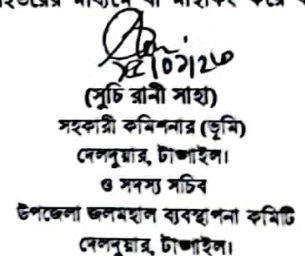 (সুচি রানী সাহা)
সহকারী কমিশনার (ভূমি)
দেলদুয়ার, টাঙ্গাইল।
ও সদস্য সচিব
উপজেলা জলমহাল ব্যবস্থাপনা কমিটি
দেলদুয়ার, টাঙ্গাইল।